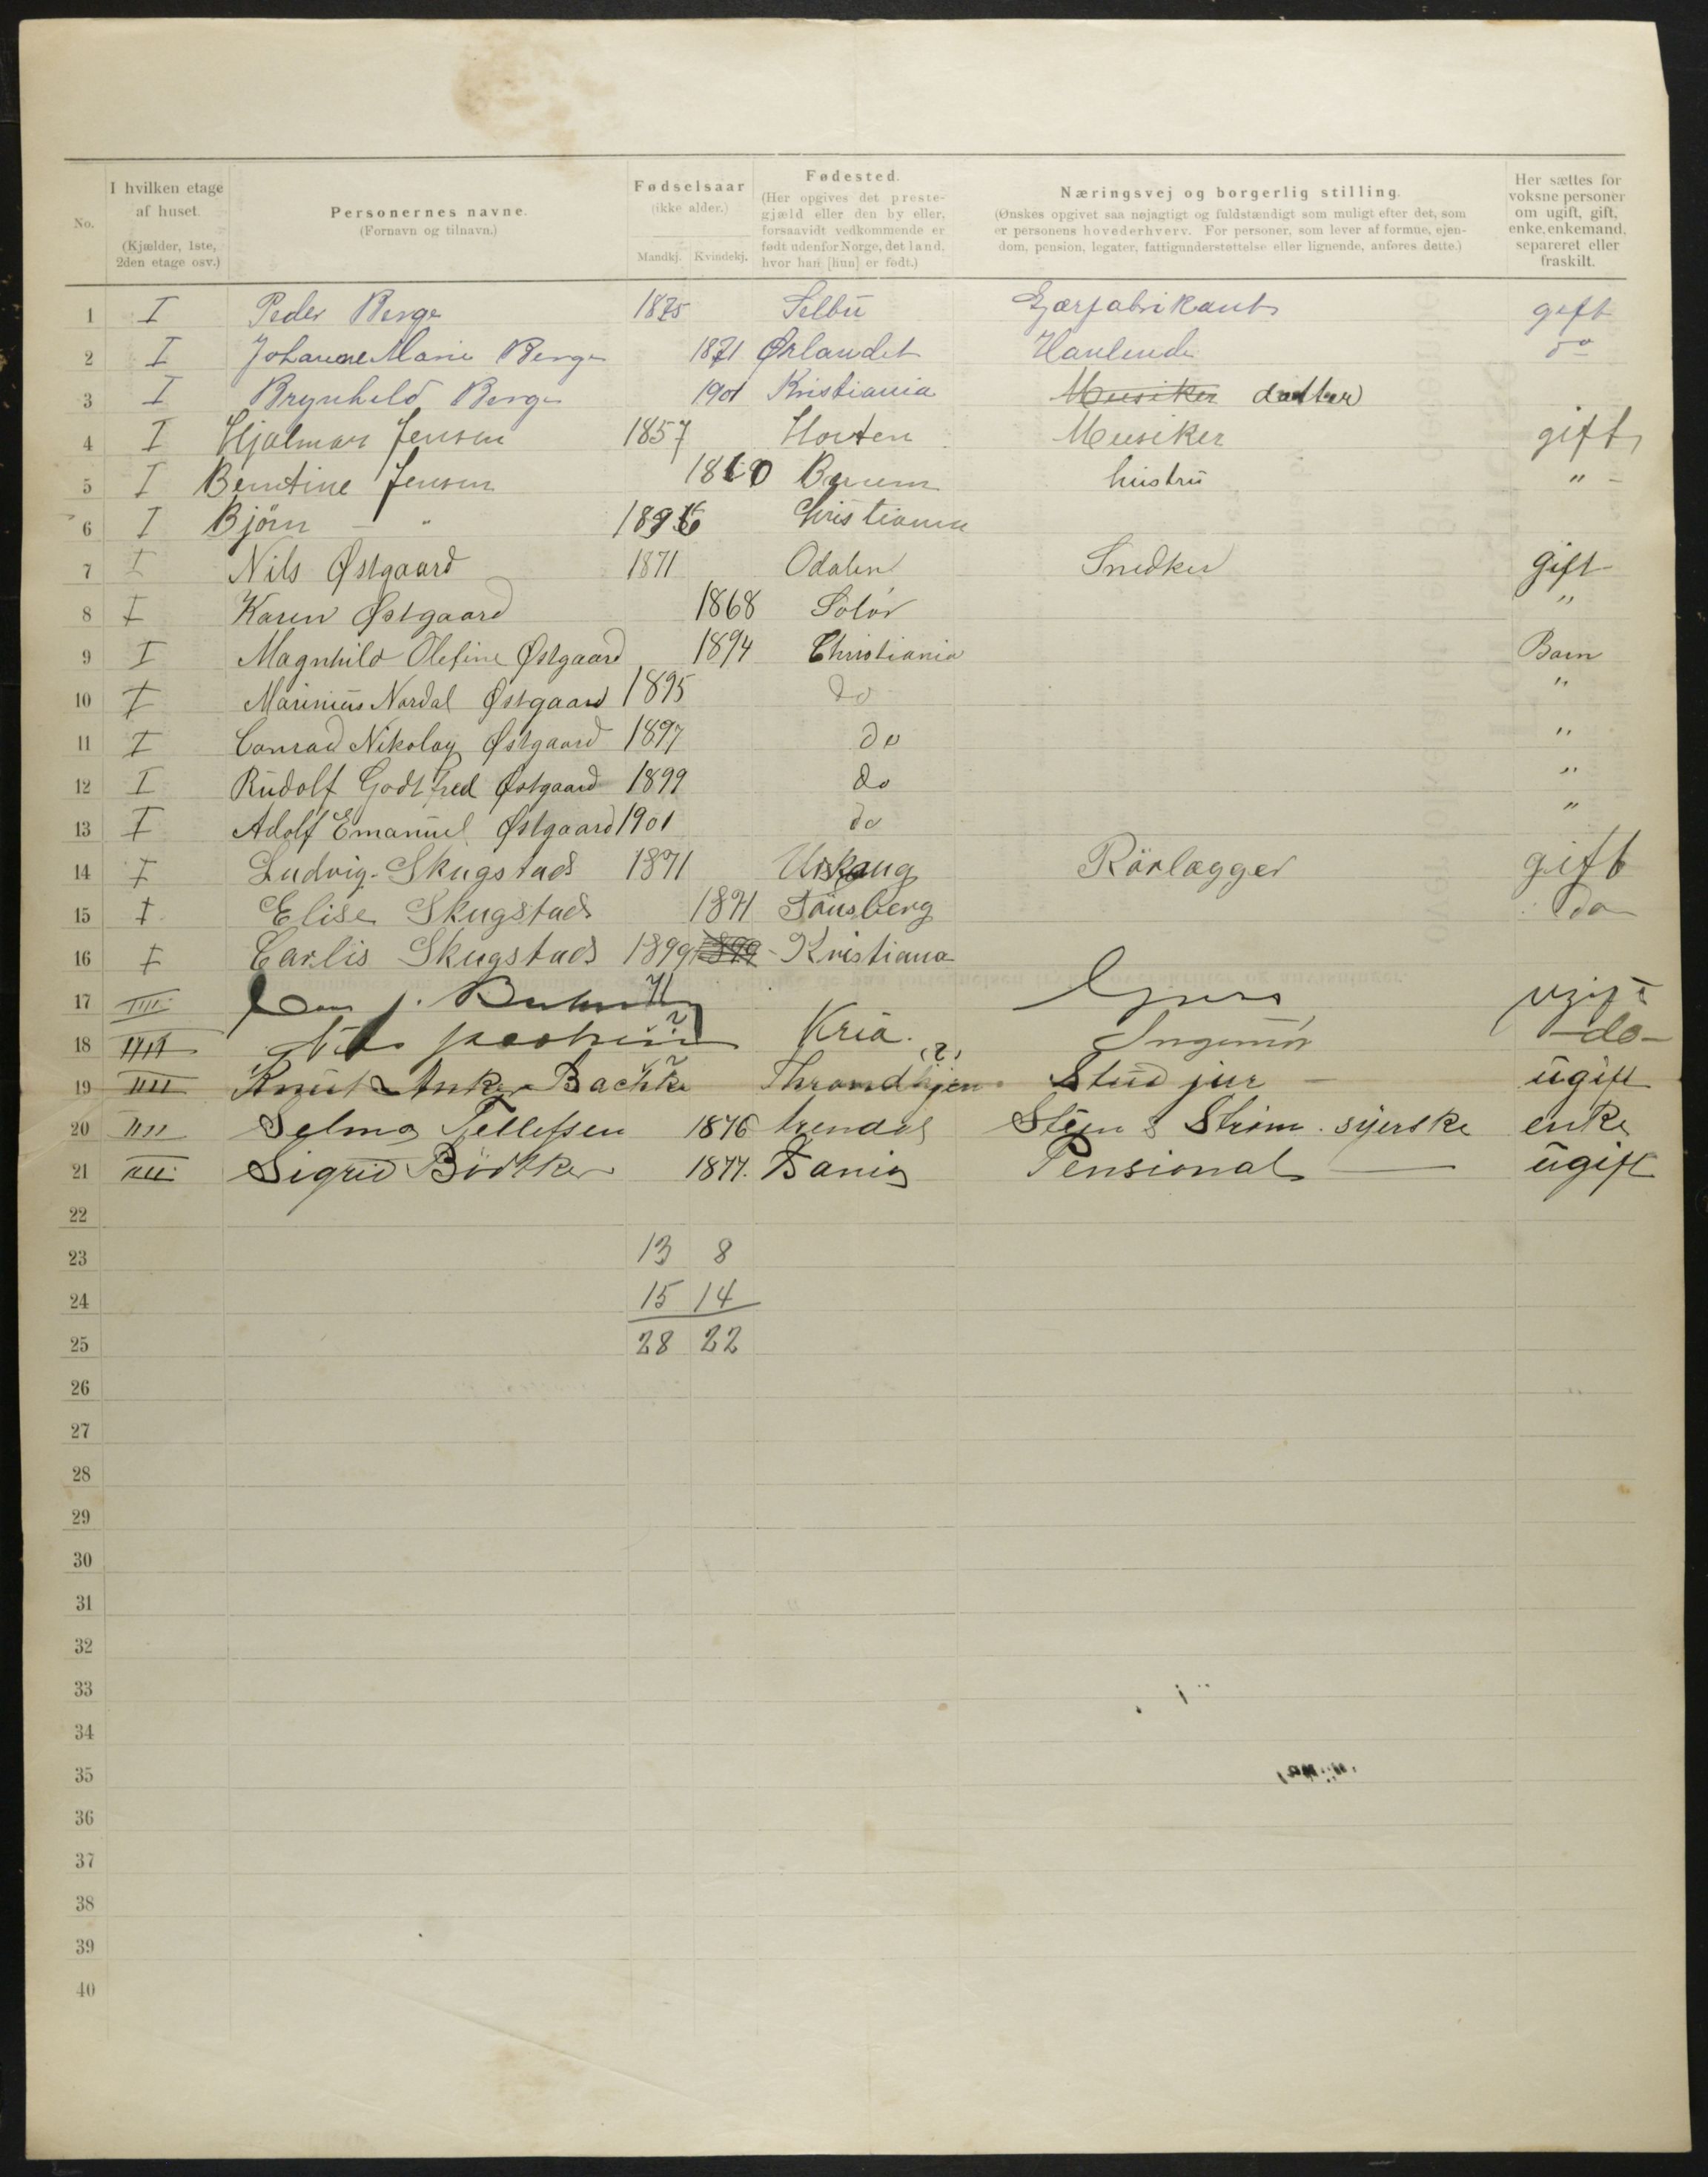 No.
I hvilken etage af huset. (Kjælder, 1ste, 2den etage osv.)
Personernes navne. (Fornavn og tilnavn.)
Fødselsaar (ikke alder.) Mandkj. Kvindekj.
Fødested. (Her opgives det prestegjæld eller den by eller, forsaavidt vedkommende er født udenfor Norge, det land, hvor han [hun] er født.)
Næringsvej og borgerlig stilling. (Ønskes opgivet saa nøjagtigt og fuldstændigt som muligt efter det, som er personens hovederhverv. For personer, som lever af formue, ejendom, pension, legater, fattigunderstøttelse eller lignende, anføres dette.)
Her sættes for voksne personer om ugift, gift, enke, enkemand, separeret eller fraskilt.
1 I Peder Berge 1875 Selbu Gjærfabrikant gift
2 I Johanne Marie Berge 1871 Ørlandet do
3 I Brynhild Berge 1901 Kristiania Musiker datter
4 I Hjalmar Jensen 1857 Horten Musiker gift
5 I Berntine Jensen 1860 Barum hustru "
6 I Bjørn — " 1896 Christiania
7 I Nils Østgaard 1871 Odalen Snedker gift
8 I Karen Østgaard 1868 Solør "
9 I Magnhild Olefine Østgaard 1894 Christiania Barn
10 I Marinius Nordal Østgaard 1895 do "
11 I Conrad Nikolay Østgaard 1897 do "
12 I Rudolf Godtfred Østgaard 1899 do "
13 I Adolf Emanuel Østgaard 1901 do "
14 I Ludvig Skugstad 1871 Urskaug Rörlægger gift
15 I Elise Skugstad 1871 Tönsberg do
16 I Carlis Skugstad 1899 1899 Kristiana
17 IIII 71 ugift
18 IIII Kria. Ingeniör do
19 IIII Knut Anker Bachke Throndhjem (?) Stud jur — ugift
20 IIII Selma Tellefsen 1876 Arendal Steen & Ström. syerske enke
21 IIII Sigrid Bödtker 1877. Pensionat — ugift
22
23 13 8
24 15 14
25 28 22
26
27
28
29
30
31
32
33
34
35
36
37
38
39
40